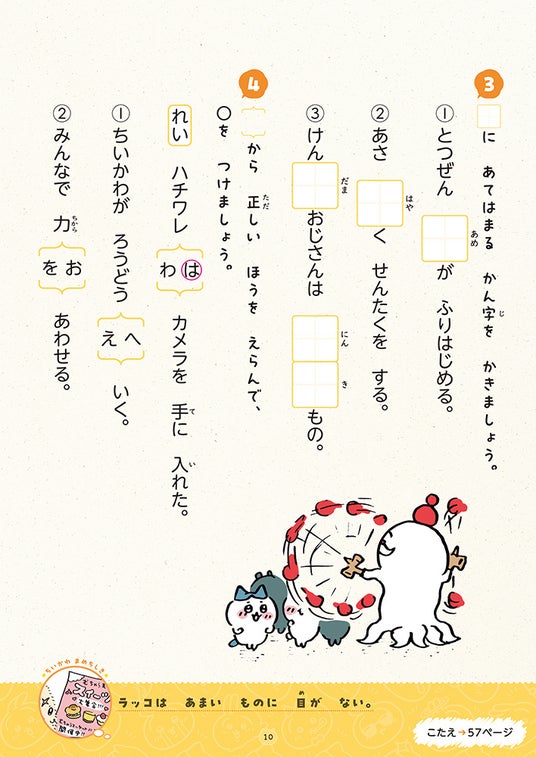 3
□に あてはまる かん字を かきましょう。
じ
① とつぜん □が ふりはじめる。
あめ
② あさ □く せんたくを する。
はや
③ けん□おじさんは □□もの。
だま
にん き
4
{ }から 正しい ほうを えらんで、
ただ
○を つけましょう。
れい ハチワレ {は わ} カメラを 手に 入れた。
て い
① ちいかわが ろうどう {へ え} いく。
② みんなで 力 {お を} あわせる。
ちから
ちいかわ まめちしき
スイーツ
開催中!!
ラッコは あまい ものに 目が ない。
め
10
こたえ→57ページ